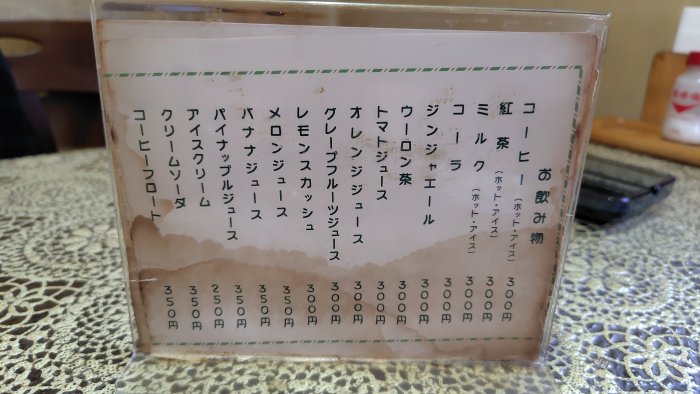 お飲み物
コーヒー(ホット・アイス) 300円
紅茶(ホット・アイス) 300円
ミルク(ホット・アイス) 300円
コーラ 300円
ジンジャエール 300円
ウーロン茶 300円
トマトジュース 300円
オレンジジュース 300円
グレープフルーツジュース 300円
レモンスカッシュ 300円
メロンジュース 350円
バナナジュース 350円
パイナップルジュース 350円
アイスクリーム 250円
クリームソーダ 350円
コーヒーフロート 350円